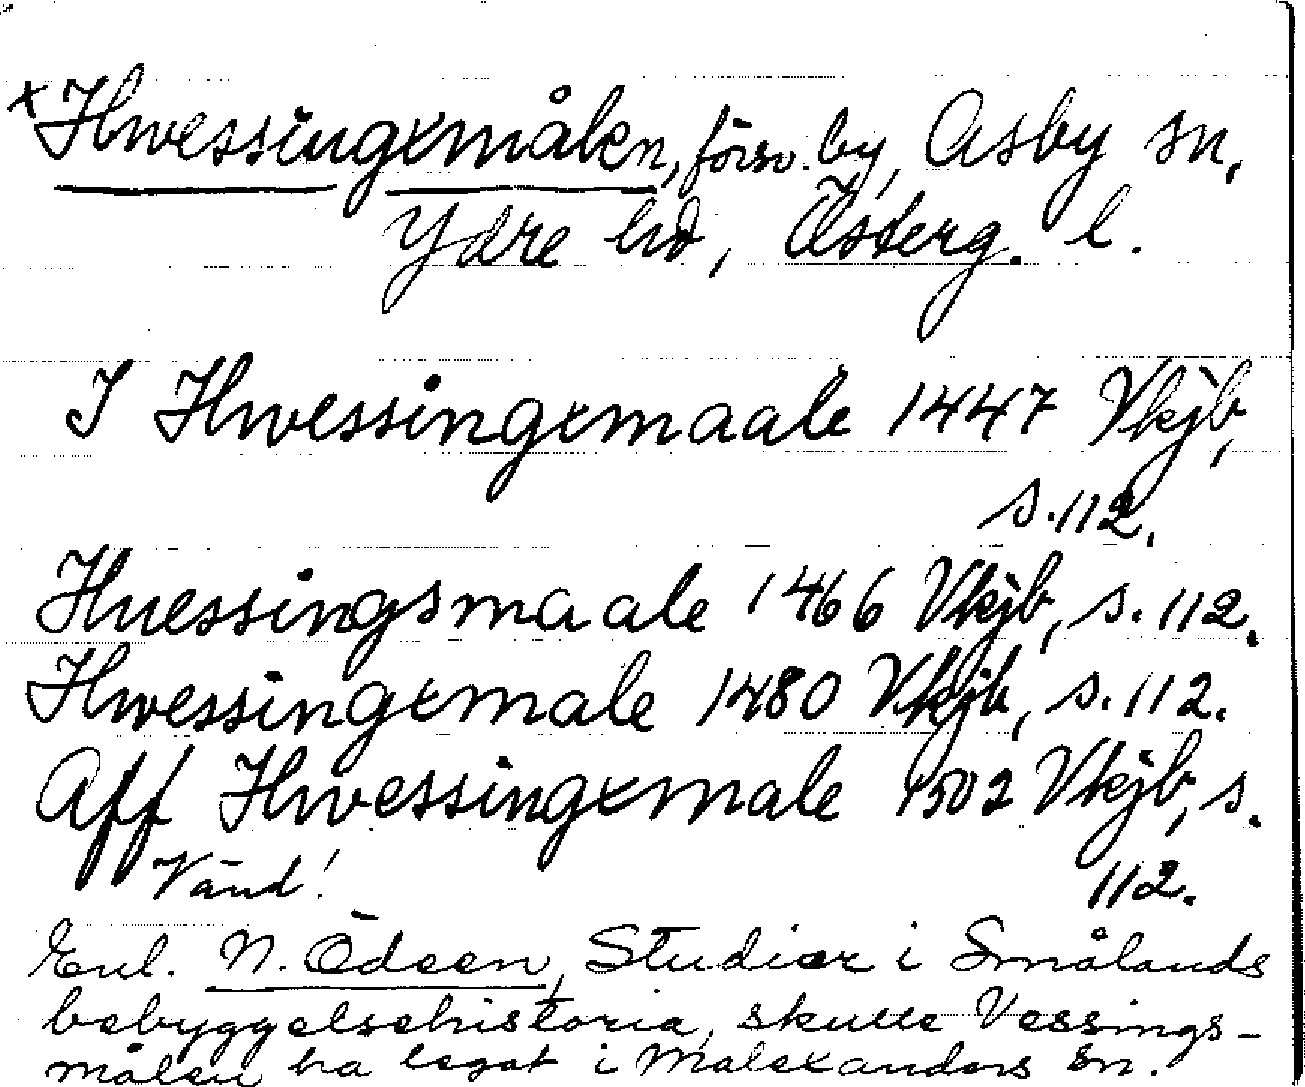 ×Hwessingxmålen, försv. by, Asby sn,
Ydre hd, Österg. l.
I Hwessingxmaale 1447 Vkjb,
s. 112.
Huessingsmaale 1466 Vkjb, s. 112.
Hwessingxmale 1480 Vkjb, s. 112.
Aff Hwessingxmale 1502 Vkjb, s.
112.
Vänd!
Enl. N. Ödeen, Studier i Smålands
bebyggelsehistoria, skulle Vessings-
målen ha legat i Malexanders sn.